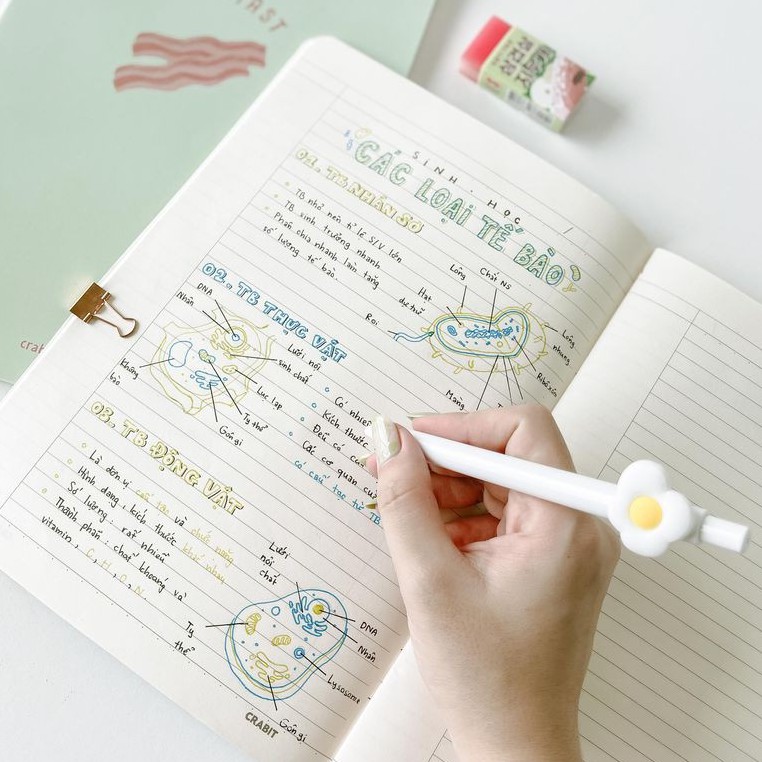 AST
삼겹살
지우개
SINH HỌC
CÁC LOẠI TẾ BÀO
01. TB NHÂN SƠ
TB nhỏ nên tỉ lệ S/V lớn
TB sinh trưởng nhanh
Phân chia nhanh làm tăng
số lượng tế bào.
Lông
Chất NS
Hạt
dự trữ
Roi
Lông
nhung
Ribôxôm
Màng
02. TB THỰC VẬT
DNA
Nhân
Lưới nội
sinh chất
Lục lạp
Ty thể
Gôngi
Không
bào
Có nhiều
Kích thước
Đều có
Các cơ quan
có cấu tạo từ TB
03. TB ĐỘNG VẬT
Là đơn vị cấu tạo và chức năng
Hình dạng, kích thước khác nhau
Số lượng rất nhiều
Thành phần: chất khoáng và
vitamin, C, H, O, N
Lưới
nội
chất
DNA
Nhân
Lysosome
Ty
thể
Gôngi
CRABIT
crab